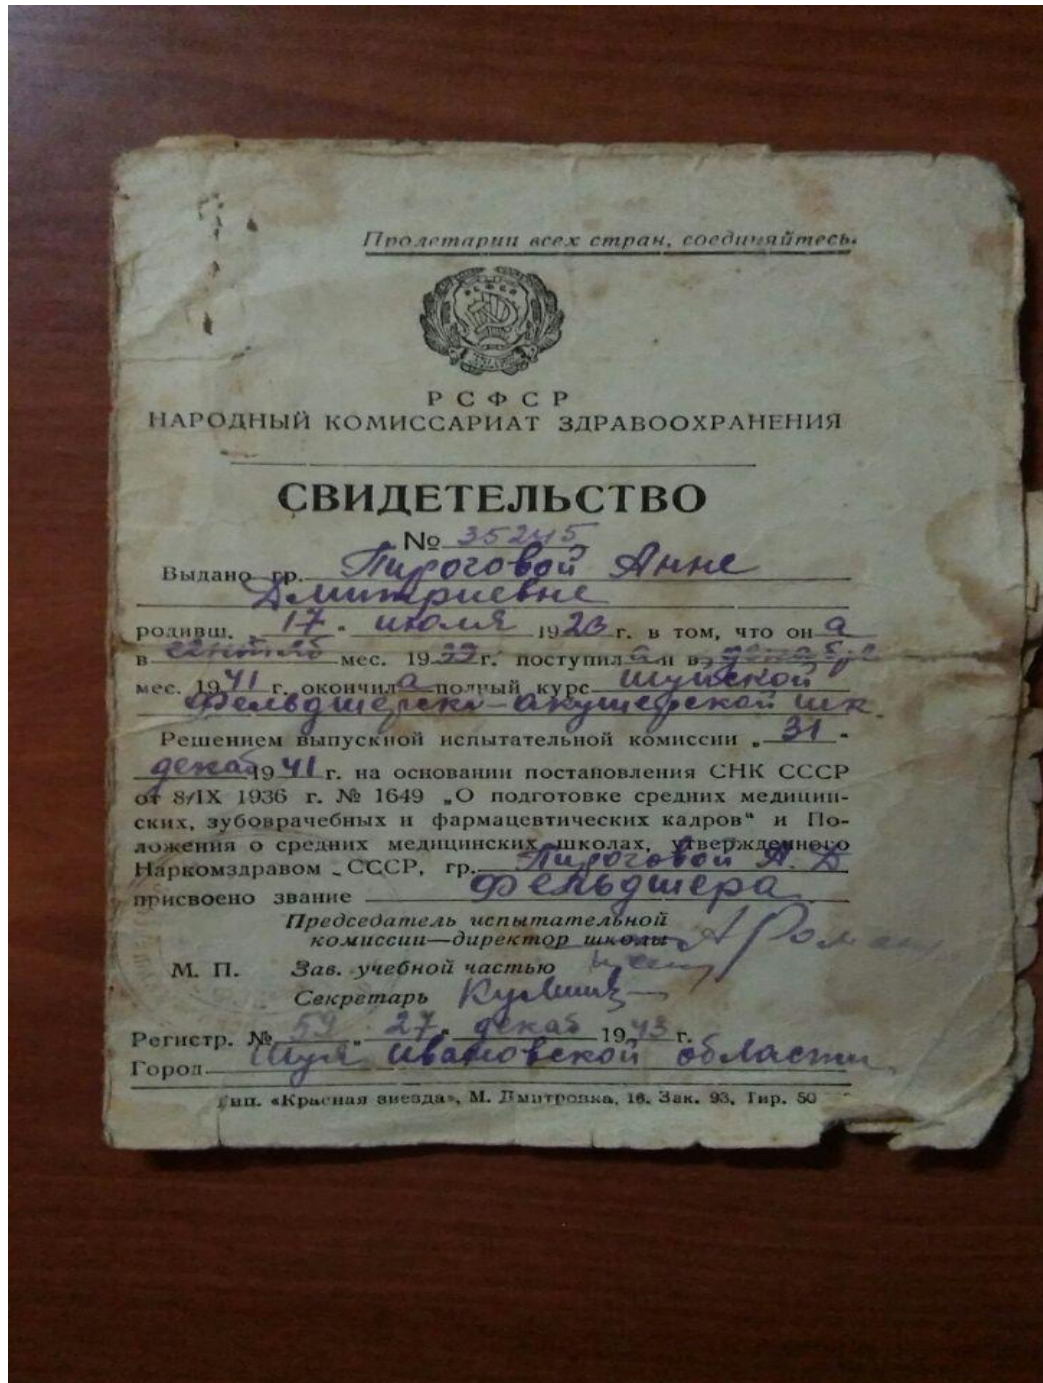 Пролетарии всех стран, соединяйтесь.
РСФСР
НАРОДНЫЙ КОМИССАРИАТ ЗДРАВООХРАНЕНИЯ
СВИДЕТЕЛЬСТВО
№ 35245
Выдано гр. Пироговой Анне
Дмитриевне
родивш. 17 " июля 1923 г. в том, что он а
в мес. 19 г. поступил а и в декабре
мес. 1941 г. окончил а полный курс Шуйской
Фельдшерско-акушерской шк.
Решением выпускной испытательной комиссии „ 31 "
декаб 1941 г. на основании постановления СНК СССР
от 8/IX 1936 г. № 1649 „О подготовке средних медицин-
ских, зубоврачебных и фармацевтических кадров" и По-
ложения о средних медицинских школах, утвержденного
Наркомздравом СССР, гр. Пироговой А. Д
присвоено звание Фельдшера
Председатель испытательной
комиссии—директор школы
М. П. Зав. учебной частью
Секретарь
Регистр. № 59 „ 27 " декаб 1943 г.
Город Шуя Ивановской области
Тип. «Красная звезда», М. Дмитровка, 16. Зак. 93. Тир. 50